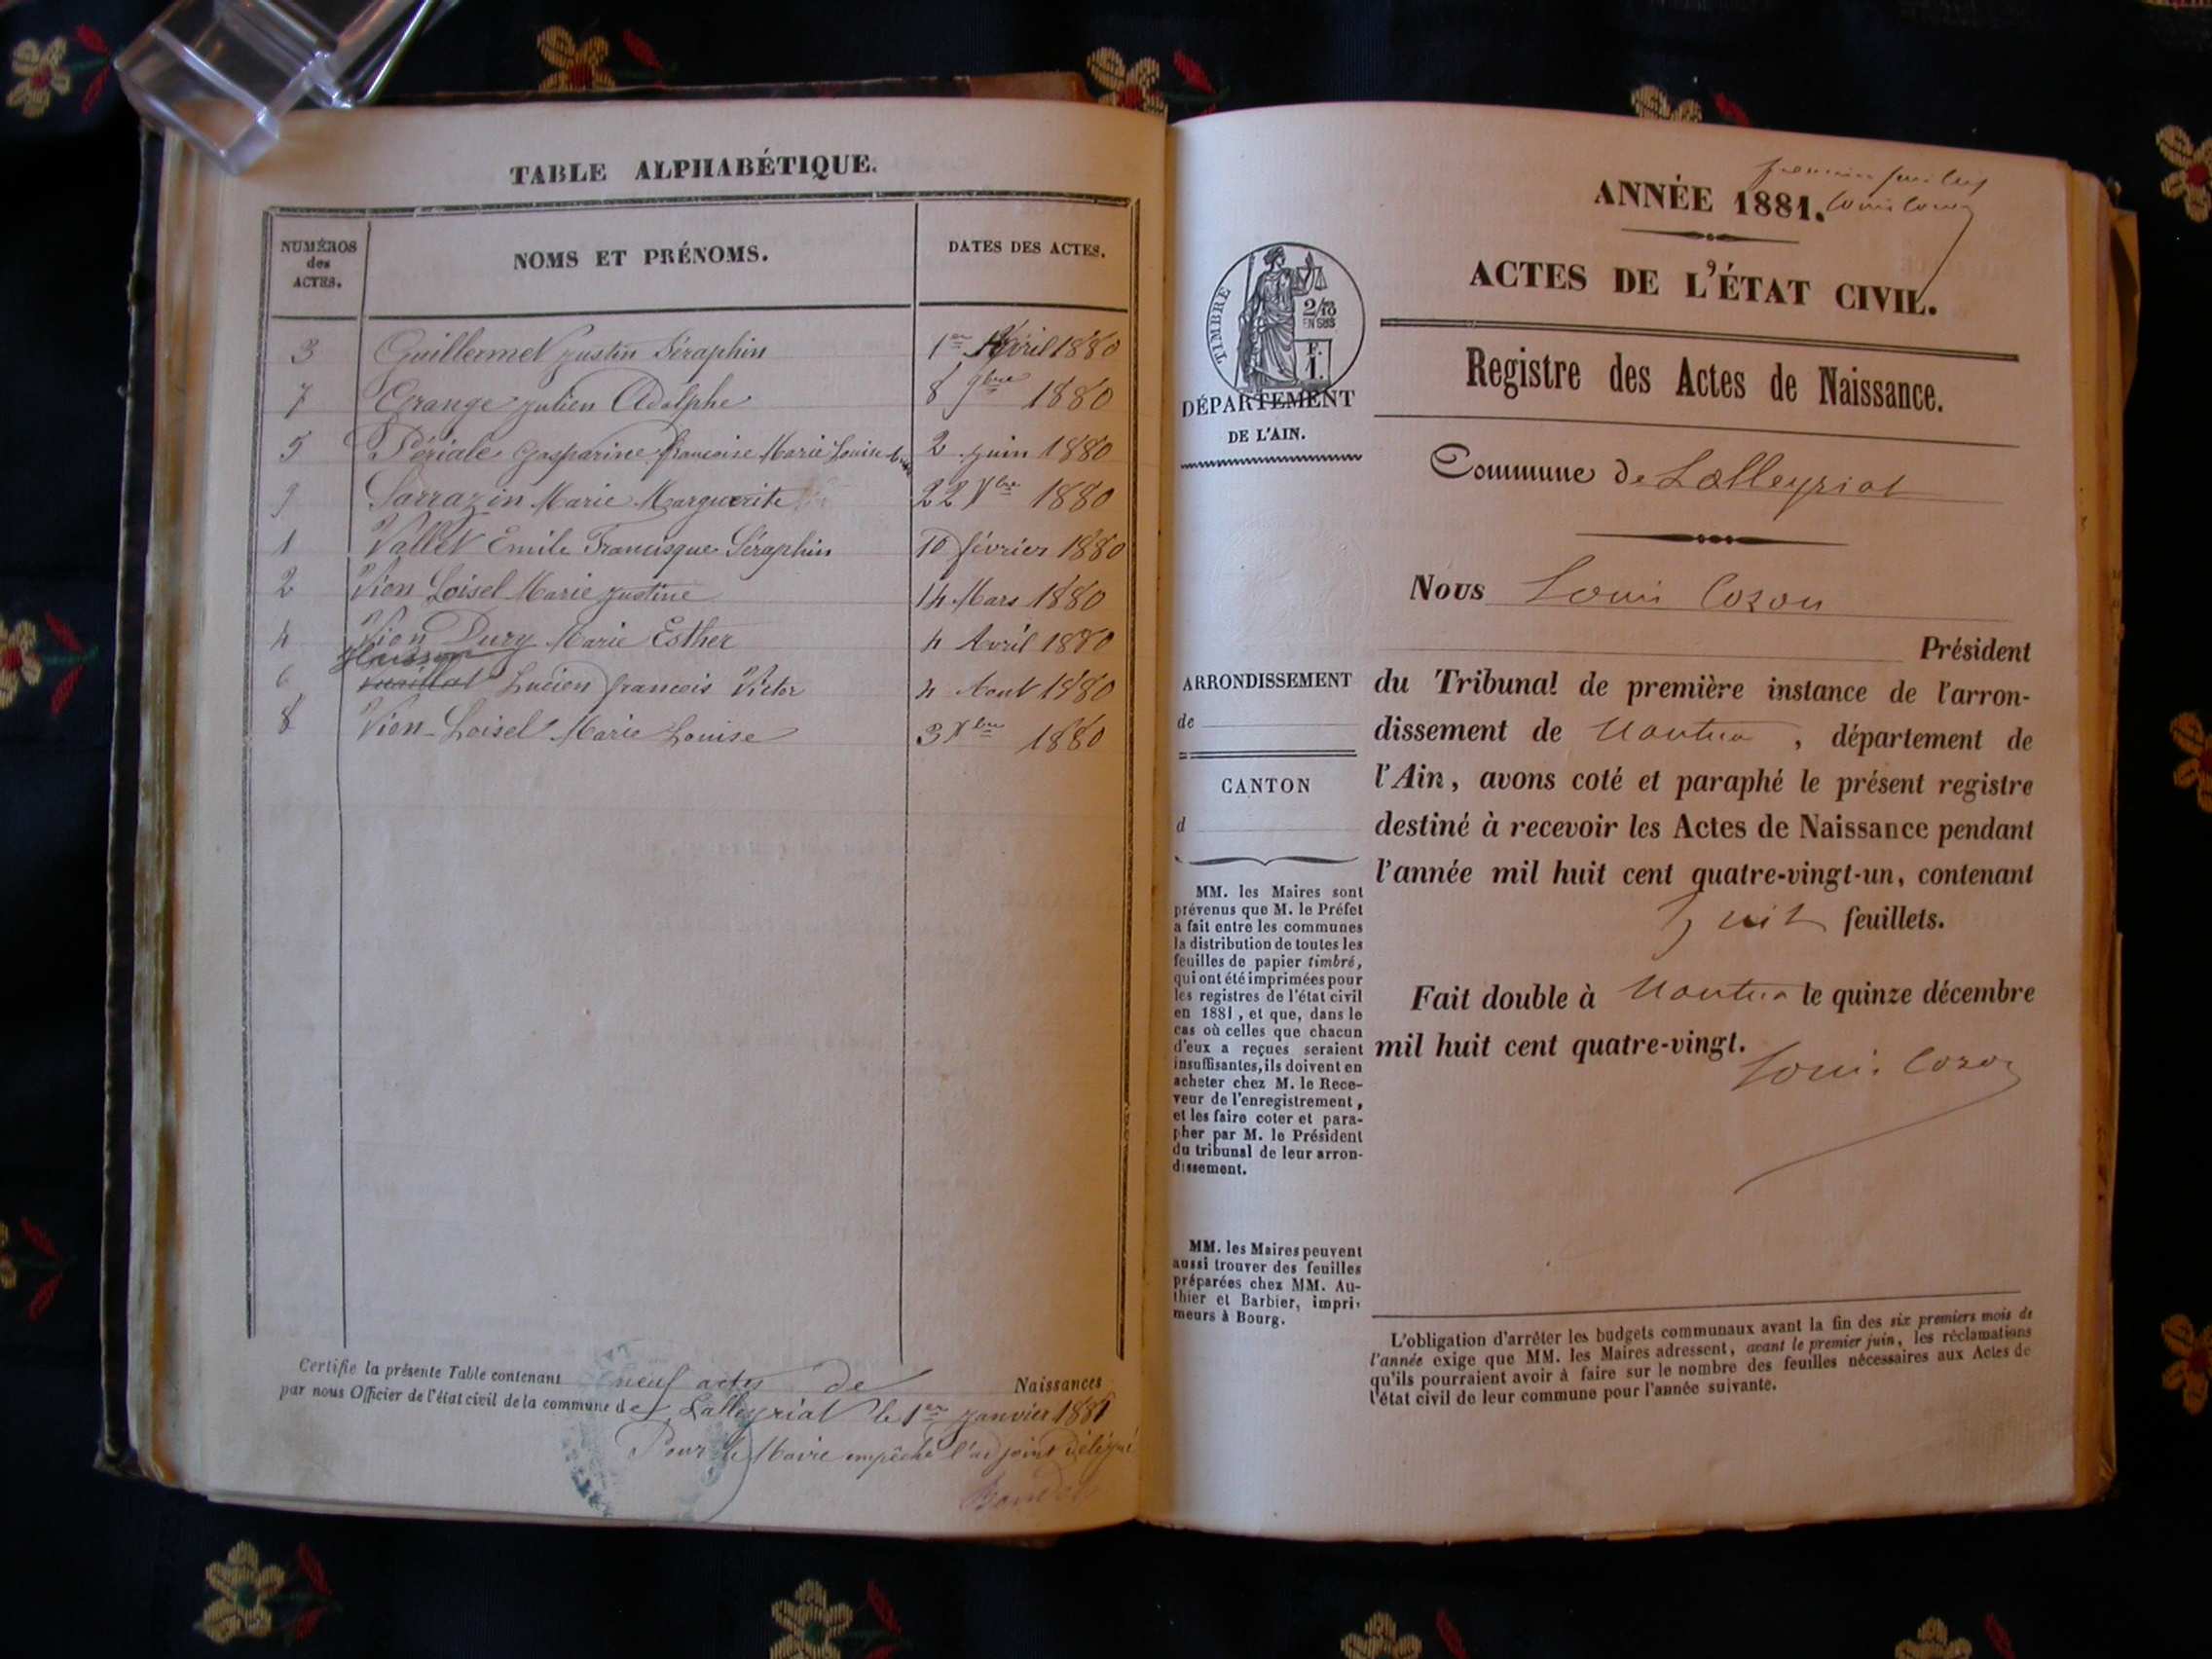 TABLE ALPHABÉTIQUE.
NUMÉROS
des
ACTES.
NOMS ET PRÉNOMS.
DATES DES ACTES.
3 Guillermet Justin Séraphin 1er Avril 1880
7 Grange Julien Adolphe 8 9bre 1880
5 Périale Gasparine françoise Marie Louise 2 Juin 1880
9 Sarrazin Marie Marguerite 22 Xbre 1880
1 Vallet Emile Francisque Séraphin 10 février 1880
2 Vion Loisel Marie Justine 14 Mars 1880
4 Vion Dury Marie Esther 4 Avril 1880
6 Lucien françois Victor 4 Aout 1880
8 Vion-Loisel Marie Louise 3 Xbre 1880
Certifie la présente Table contenant neuf actes de Naissances
par nous Officier de l'état civil de la commune de Lalleyriat le 1er Janvier 1881
Pour le Maire empêché l'adjoint délégué
premier feuillet
ANNÉE 1881. Louis Cozon
ACTES DE L'ÉTAT CIVIL.
TIMBRE
2/10
EN SUS
F.
1.
DÉPARTEMENT
DE L'AIN.
Registre des Actes de Naissance.
Commune de Lalleyriat
Nous Louis Cozon
Président
du Tribunal de première instance de l'arron-
dissement de Nantua, département de
l'Ain, avons coté et paraphé le présent registre
destiné à recevoir les Actes de Naissance pendant
l'année mil huit cent quatre-vingt-un, contenant
huit feuillets.
Fait double à Nantua le quinze décembre
mil huit cent quatre-vingt.
Louis Cozon
ARRONDISSEMENT
de
CANTON
d
MM. les Maires sont
prévenus que M. le Préfet
a fait entre les communes
la distribution de toutes les
feuilles de papier timbré,
qui ont été imprimées pour
les registres de l'état civil
en 1881, et que, dans le
cas où celles que chacun
d'eux a reçues seraient
insuffisantes, ils doivent en
acheter chez M. le Rece-
veur de l'enregistrement,
et les faire coter et para-
pher par M. le Président
du tribunal de leur arron-
dissement.
MM. les Maires peuvent
aussi trouver des feuilles
préparées chez MM. Au-
thier et Barbier, impri-
meurs à Bourg.
L'obligation d'arrêter les budgets communaux avant la fin des six premiers mois de
l'année exige que MM. les Maires adressent, avant le premier juin, les réclamations
qu'ils pourraient avoir à faire sur le nombre des feuilles nécessaires aux Actes de
l'état civil de leur commune pour l'année suivante.